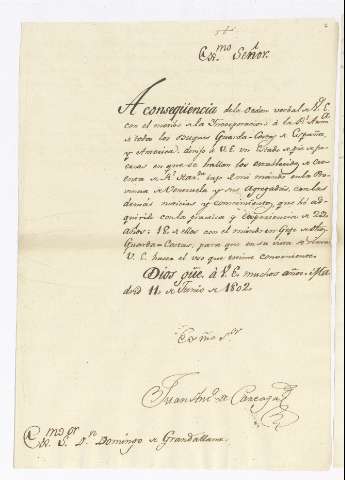 Exc.mo Señor.
A conseqüencia de la orden verbal de V. E.
con el motivo de la Incorporacion à la Rl. Arma
de todos los Buques Guarda-Costas de España,
y America; dirijo à V. E. un Estado de
en que se hallan los establecidos de
cuenta de Rl. Haz.da bajo el mi mando en la Pro
vincia de Venezuela y sus Agregadas, con las
demàs noticias y conocimientos, que hé ad
quirido con la practica y experiencia de 22
años; 18 de ellos con el mando en Gefe de
Guarda-Costas, para que en su vista se sirva
V. E. hacer el uso que estime conveniente.
Dios güe. à V. E. muchos años. Ma
drid 11 de Junio de 1802
Exc.mo S.or
Juan Ant.o de Careaga
Exc.mo S.or D.n Domingo de Grandallana.